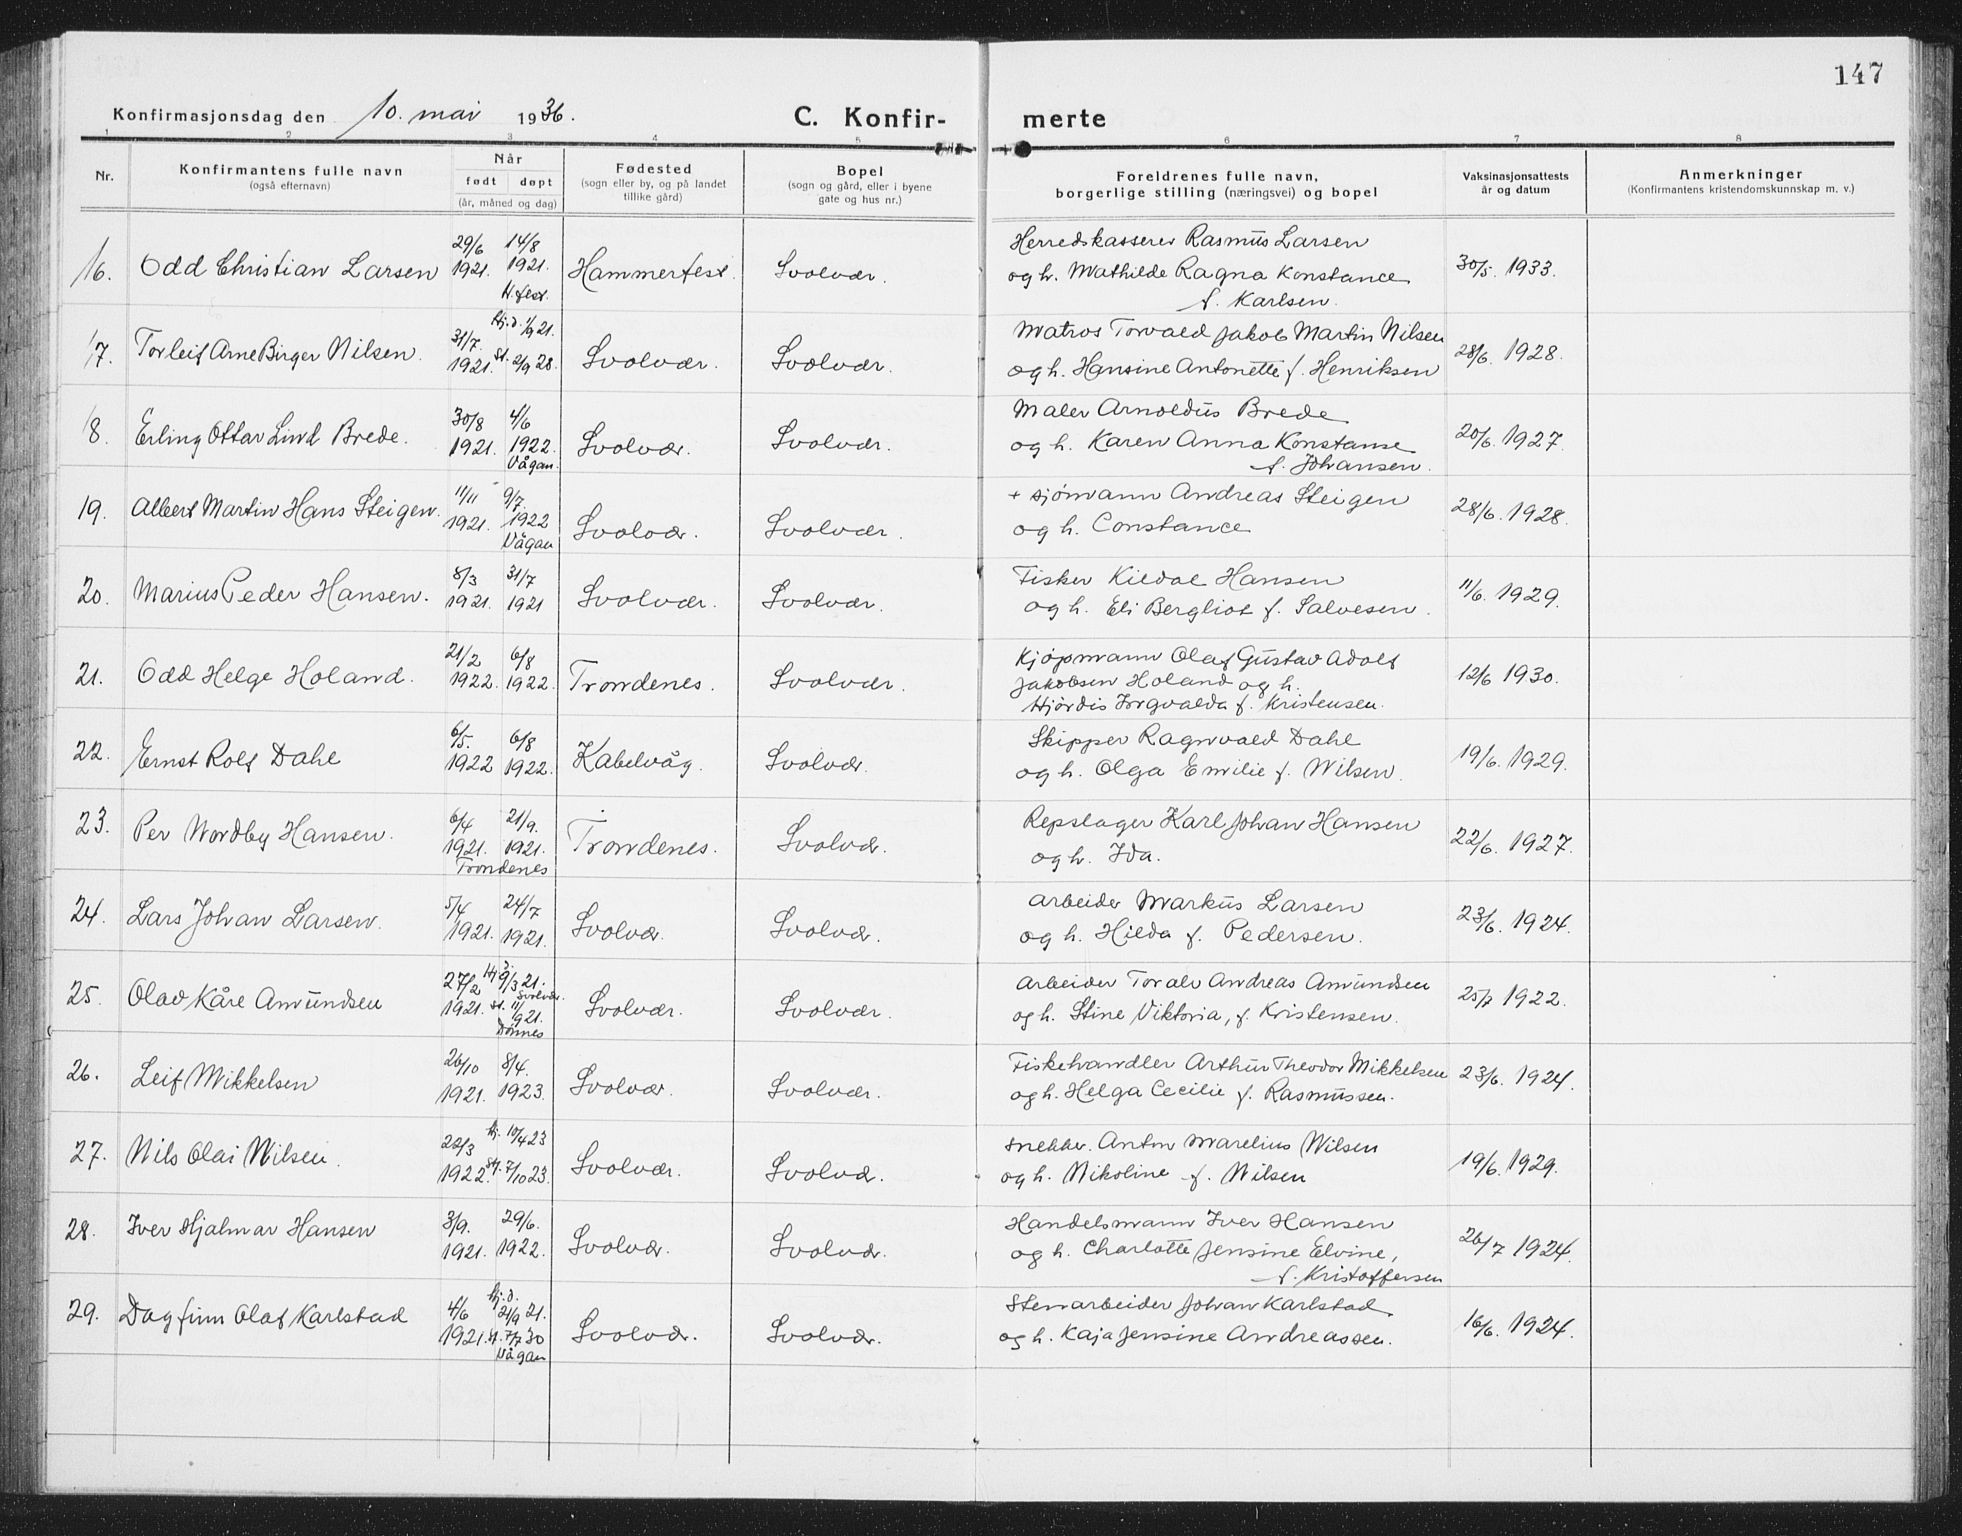 147
Konfirmasjonsdag den 10. mai 1936.
C. Konfir- merte
1 2 3 4 5 6 7 8
Nr.
Konfirmantens fulle navn
(også efternavn)
Når
født døpt
(år, måned og dag)
Fødested
(sogn eller by, og på landet
tillike gård)
Bopel
(sogn og gård, eller i byene
gate og hus nr.)
Foreldrenes fulle navn,
borgerlige stilling (næringsvei) og bopel
Vaksinasjonsattests
år og datum
Anmerkninger
(Konfirmantens kristendomskunnskap m. v.)
29/6 14/8 Herredskasserer Rasmus Larsen
16. Odd Christian Larsen 1921. 1921. Hammerfest. Svolvær. og h. Mathilde Ragna Konstance 30/5. 1933.
H.fest. f. Karlsen.
31/7. Hj.d. 1/9 21. Matros Torvald Jakob Martin Nilsen
17. Torleif Arne Birger Nilsen. 1921. St. 2/9 28. Svolvær. Svolvær. og h. Hansine Antonette f. Henriksen 28/6. 1928.
30/8 4/6 Maler Arnoldus Brede
18. Erling Ottar Lind Brede. 1921. 1922. Svolvær. Svolvær. og h. Karen Anna Konstanse 20/6. 1927.
Vågan. f. Johansen.
11/11 9/7. + sjømann Andreas Steigen
19. Albert Martin Hans Steigen. 1921. 1922 Svolvær. Svolvær. og h. Constance 28/6. 1928.
Vågan
8/3 31/7 Fisker Kildal Hansen
20. Marius Peder Hansen. 1921. 1921 Svolvær. Svolvær. og h. Eli Bergliot f. Salvesen. 11/6. 1929.
21/2 6/8 Kjøpmann Olaf Gustav Adolf
21. Odd Helge Holand. 1922. 1922. Trondenes. Svolvær. Jakobsen Holand og h. 12/6 1930.
Hjördis Torgvalda f. Kristensen.
6/5. 6/8 Skipper Ragnvald Dahl
22. Ernst Rolf Dahl 1922 1922. Kabelvåg. Svolvær. og h. Olga Emilie f. Nilsen. 19/6. 1929.
6/4 21/9. Repslager Karl Johan Hansen
23. Per Nordby Hansen. 1921. 1921. Trondenes. Svolvær. og h. Ida. 22/6. 1927.
Trondenes
5/4 24/7 Arbeider Markus Larsen
24. Lars Johan Larsen. 1921. 1921. Svolvær. Svolvær. og h. Hilda f. Pedersen. 23/6. 1924.
27/2 Hj. d. 9/3 21. Svolvær. Arbeider Toralv Andreas Amundsen
25. Olav Kåre Amundsen 1921. St. 11/9 21. Svolvær. Svolvær. og h. Stine Viktoria, f. Kristensen. 25/7 1922.
Dönnes
26/10 8/4. Fiskehandler Arthur Theodor Mikkelsen
26. Leif Mikkelsen 1921. 1923. Svolvær. Svolvær. og h. Helga Cecilie f. Rasmussen. 23/6. 1924.
22/3 Hj. 10/4 23 Snekker. Anton Marelius Nilsen
27. Nils Olai Nilsen. 1922. St. 7/10 23. Svolvær. Svolvær. og h. Nikoline f. Nilsen 19/6. 1929.
3/9. 29/6. Handelsmann Iver Hansen
28. Iver Hjalmar Hansen 1921. 1922. Svolvær. Svolvær. og h. Charlotte Jensine Elvine, 26/7 1924.
f. Kristoffersen
4/6 Hj.d. 21/9 21. Stenarbeider Johan Karlstad
29. Dagfinn Olaf Karlstad 1921. St. 7/7 30 Svolvær. Svolvær. og h. Kaja Jensine Andreassen. 16/6. 1924.
Vågan